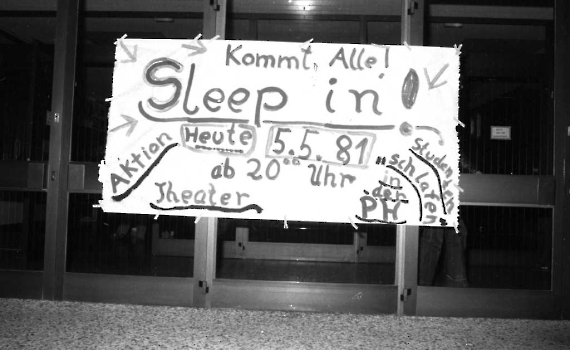 Kommt, Alle!
Sleep in!
Heute 5.5.81
ab 20⁰⁰ Uhr
Aktion
Theater
"Studenten
schlafen
in
der
PH"